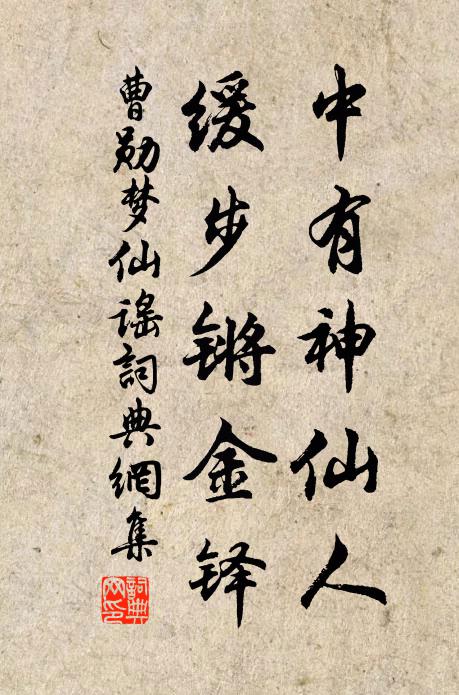 中有神仙人
缓步锵金铎
曹勋梦仙谣詞典網集
詞典网印